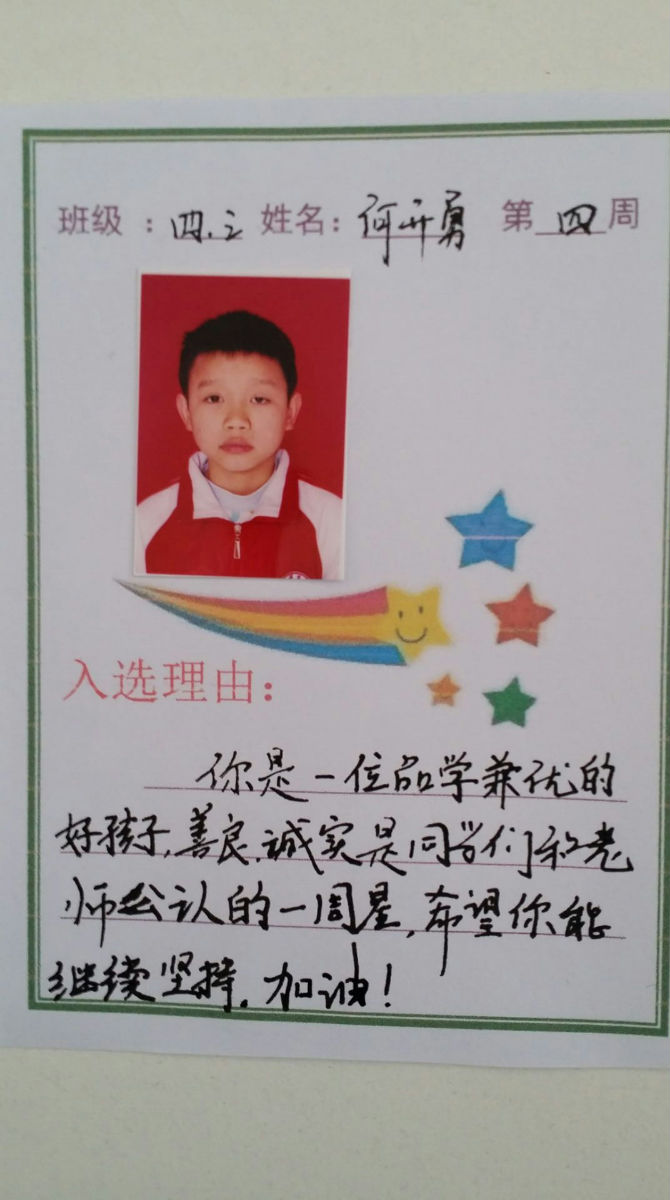 班级：四.三 姓名：何开勇 第四周
入选理由：
你是一位品学兼优的
好孩子,善良.诚实是同学们和老
师公认的一周星,希望你能
继续坚持.加油!